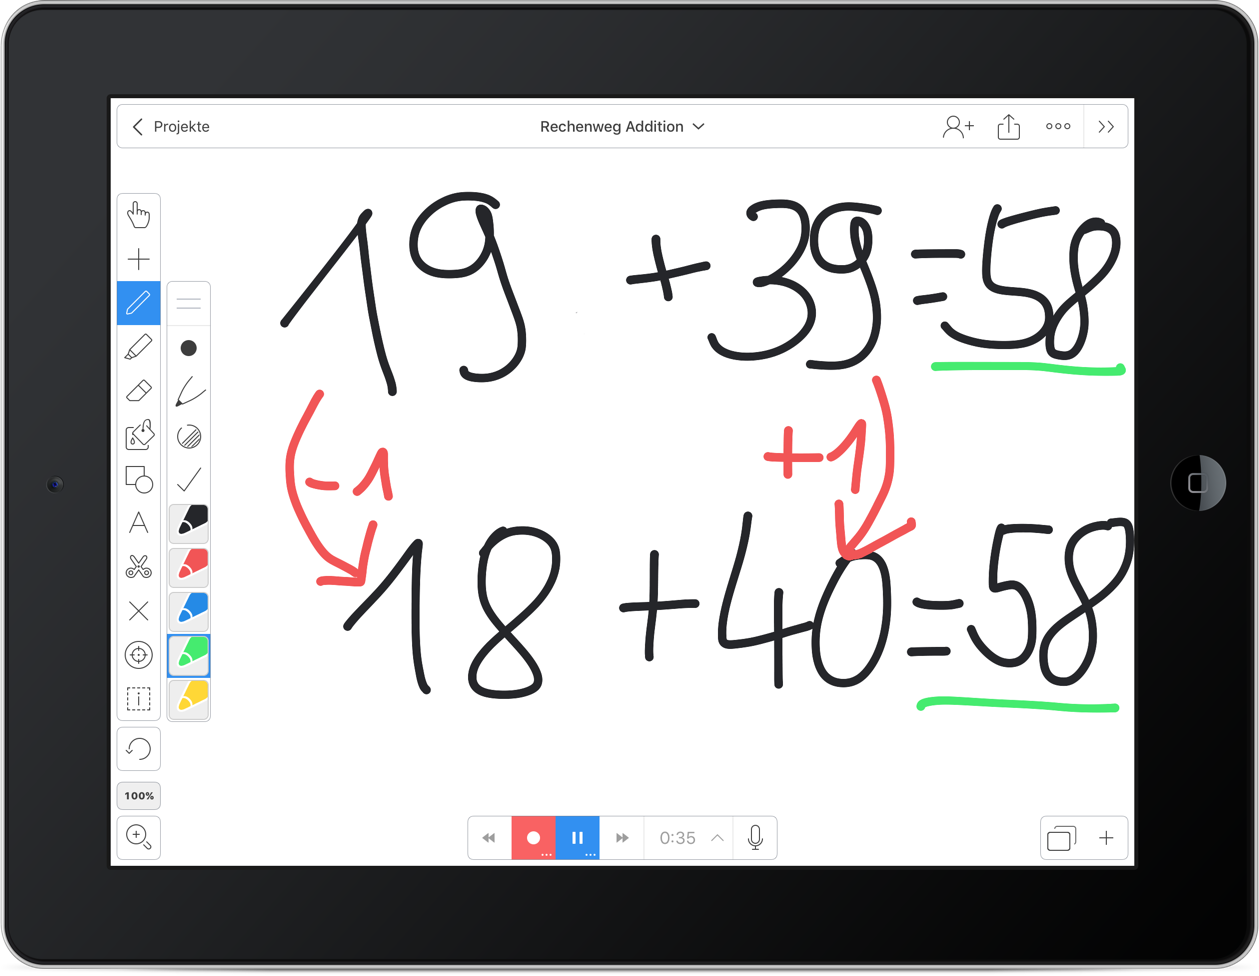 Projekte
Rechenweg Addition
19 + 39 = 58
-1 +1
18 + 40 = 58
A
i
100%
0:35